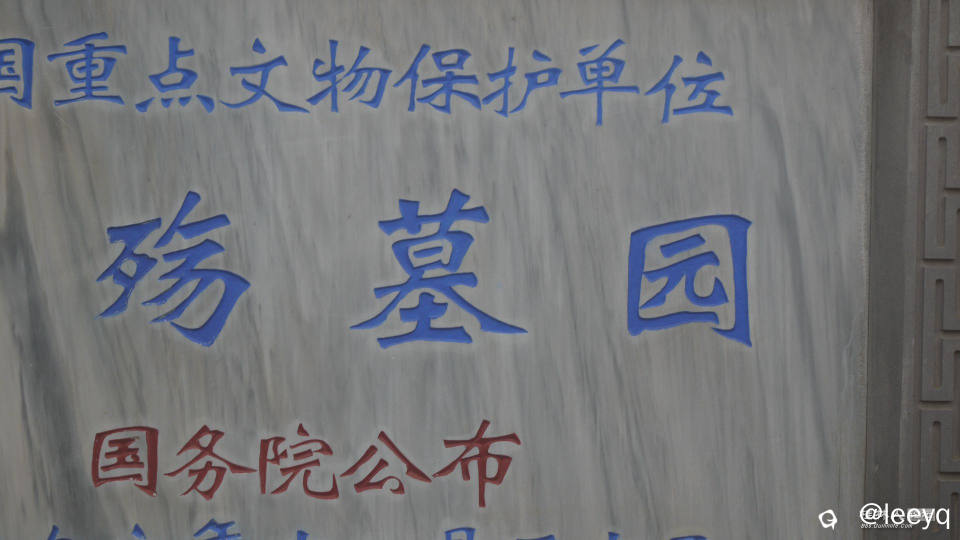 国重点文物保护单位
殇墓园
国务院公布
@leeyq